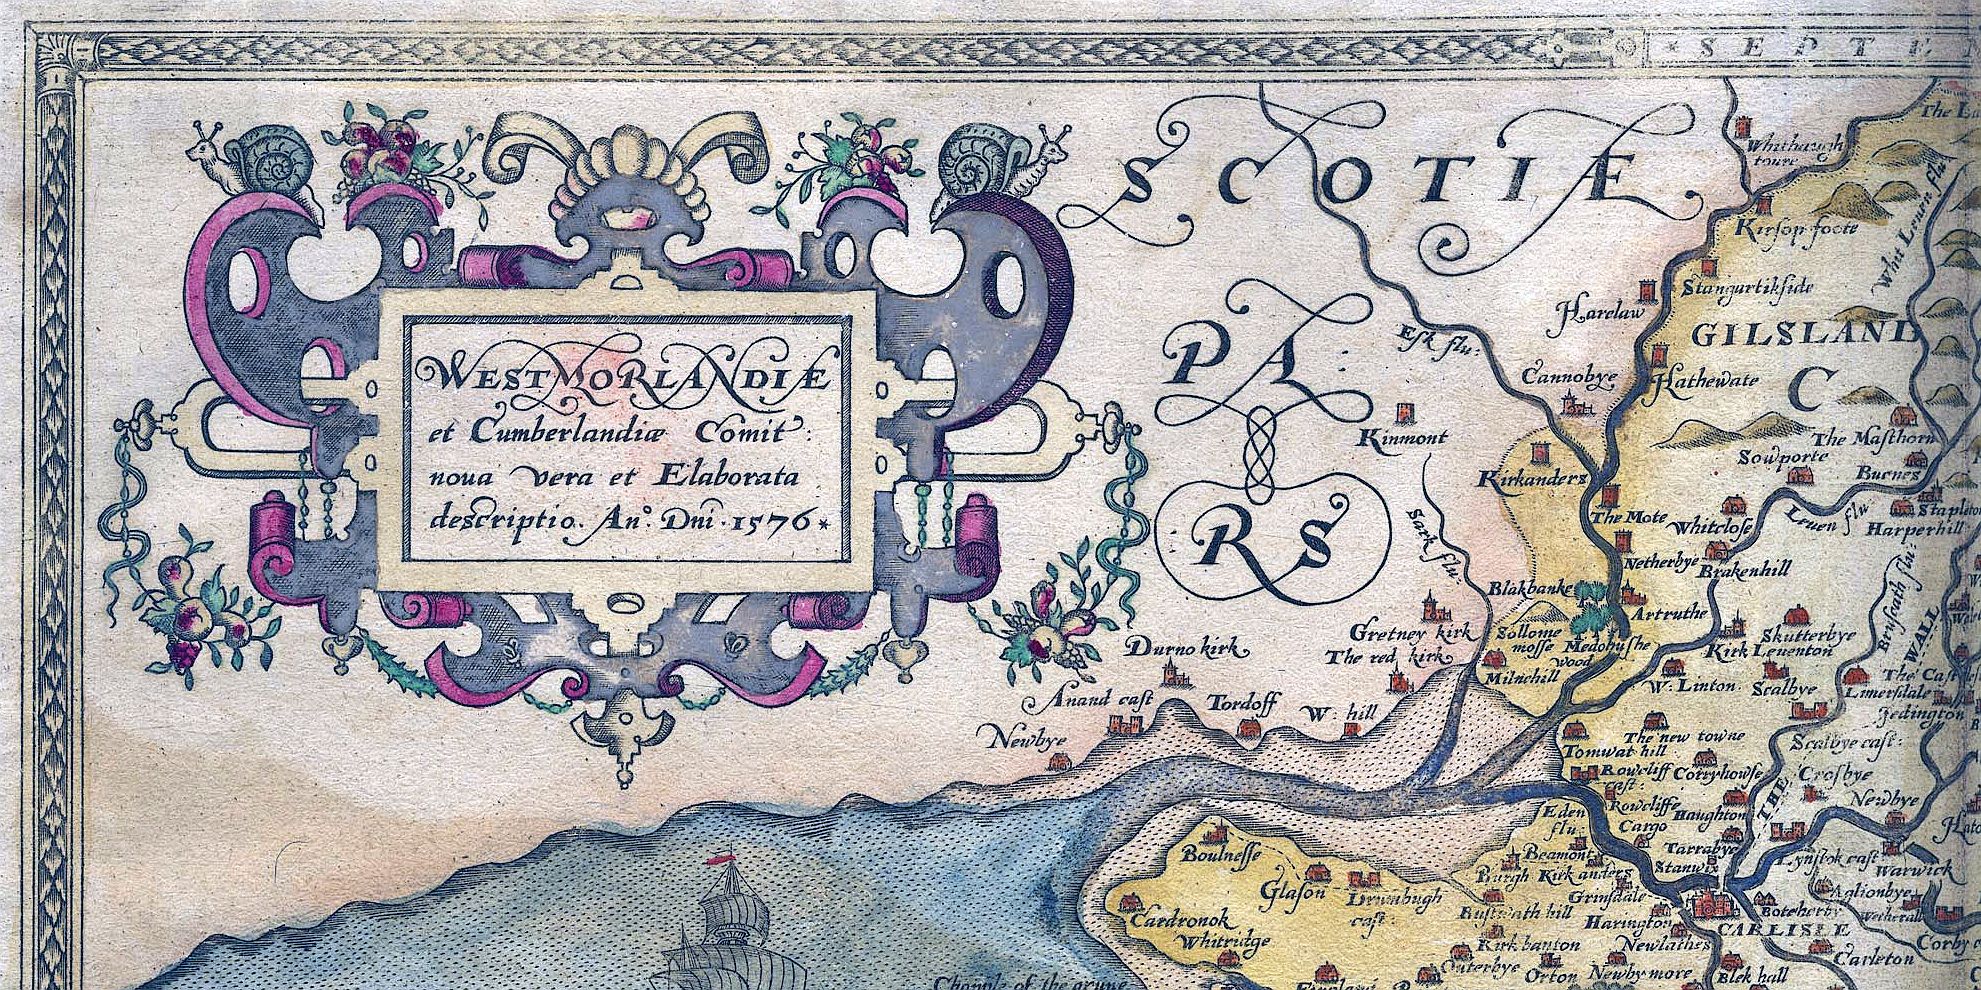 SEPTE
WESTMORLANDIÆ
et Cumberlandiæ Comit:
noua vera et Elaborata
descriptio. An°. Dni. 1576*
SCOTIÆ
PA:
RS
Whithaugh
toure
Kirsop foote
Whit Leuen flu
Stangurtikside
Harelaw
GILSLAND
Esk flu:
Cannobye
Hathewate
C
Kinmont
The Masthorn
Sowporte
Bucnes
Kirkanders
Sark flu:
The Mote
Whitclose
Leuen flu
Stapleton
Harperhill
Netherbye
Brakenhill
Blakbanke
Artruthe
Brusgath flu:
WALL
Gretney kirk
Sollome
mosse
Medohushe
wood
Skutterbye
Kirk Leuenton
Durno kirk
The red kirk
Milnchill
W: Linton
Scalbye
Limersdale
Jedington
Anand cast
Tordoff
W: hill
Newbye
The new towne
Tomwat hill
Scalbye cast:
Rowcliff
cast:
Corryhowse
Crosbye
THE
Eden
flu:
Rowcliffe
Cargo
Haughton
Newbye
Boulnesse
Beamont
Tarrabye
Stanwix
Lynstok cast
Warwick
Glason
Drumbugh
cast:
Burgh
Kirkanders
Grinsdale
Aglionbye
Cardronok
Harington
Botcherby
Wetherall
CARLISLE
Whitridge
Kirkbanton
Newlathes
Corby
Outerbye
Orton
Newbymore
Blek hall
Carleton
Chapple of the grune